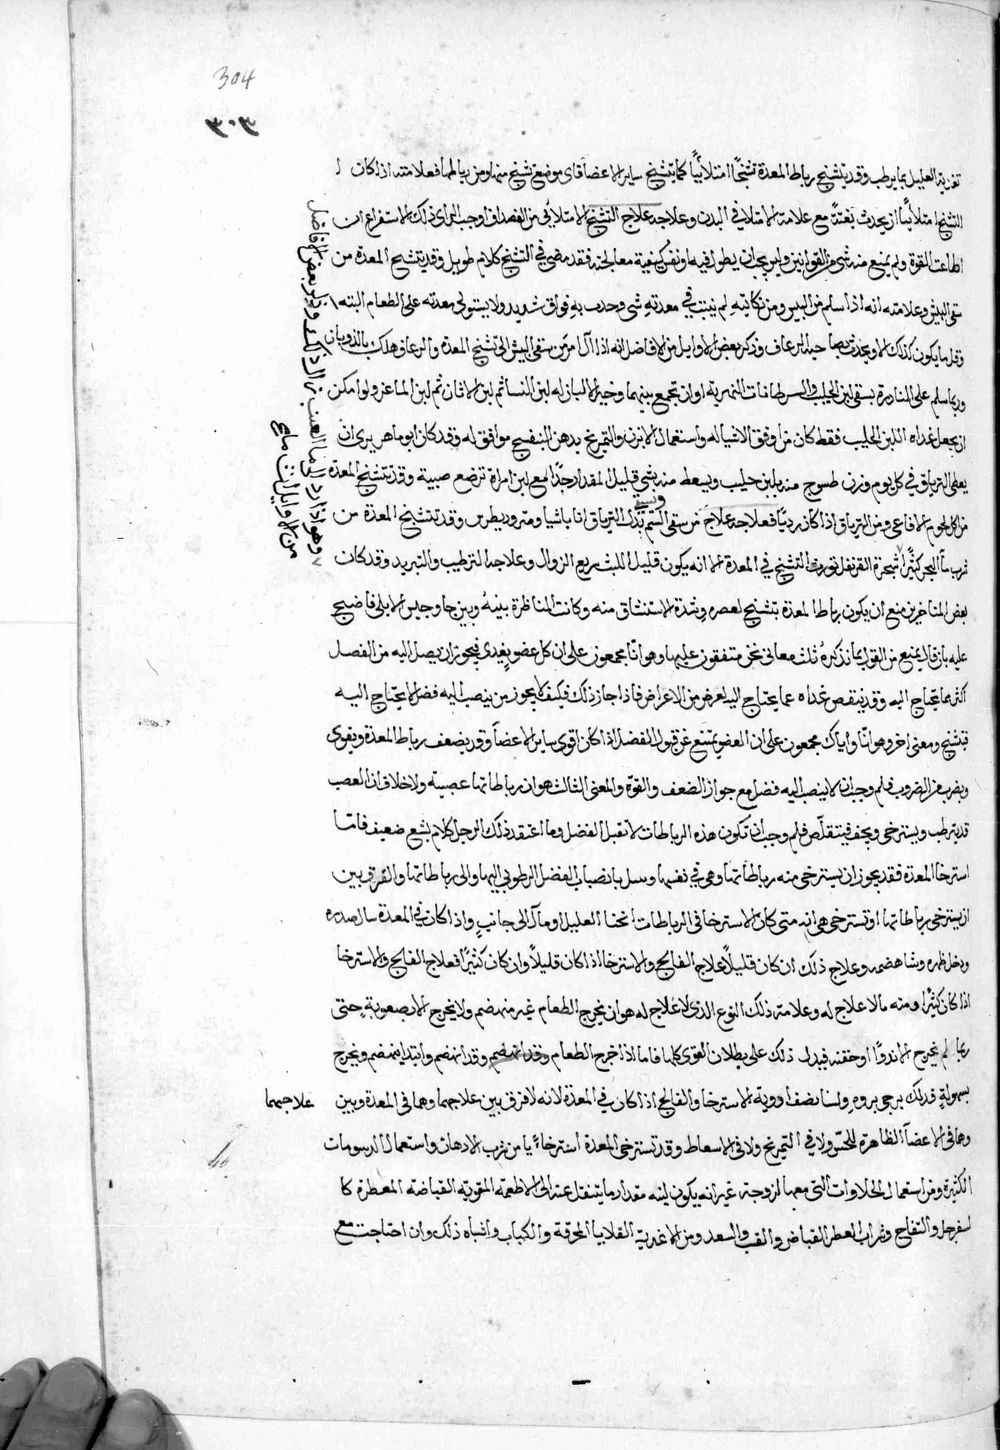 304
٣٠٣
تغذية العليل بما يرطب وقد يتشنج رباط المعدة تشنجًا امتلائيًا كما يتشنج ساير الاعضا فاى موضع تشنج منها ومن رباطها فعلامته اذا كان
التشنج امتلائيًا ان يحدث بغتة مع علامة الامتلا في البدن وعلاجه علاج التشنج الامتلائى من الفصد ان اوجب الراى ذلك الاستفراغ ان
اطاعت القوة ولم يمنع منه شى من القوانين وليس يجب ان يطول فيه او نفسر كيفية معالجته فقد مضى في التشنج كلام طويل وقد يتشنج المعدة من
سقى البيش وعلامته انه اذا سلم من البيس ومن نكايته لم يثبت في معدته شى وحدث به فواق شديد ولا يستولى معدته على الطعام البته
وقل ما يكون كذلك الا ويحدث بصاحبه الرعاف وذكر بعض الاوايل من الافاضل انه اذا آل امر من سقى البيش الى تشنج المعدة والرعاف هلك بالذوبان
وربما سلم على النادرة بسقى لبن الحليب والسرطانات النهرية او ان تجمع بينهما وخير الالبان له لبن النسا ثم لبن الاتان ثم لبن الماعز ولو امكن
ان يجعل غداه اللبن الحليب فقط كان من اوفق الاشيا له واستعمال الابزن والتمريخ بدهن البنفسج موافق له وقد كان ابو ماهر يرى ان
يعطى الترياق في كل يوم وزن طسوج منه بلبن حليب ويسعط منه بشى قليل المقدار جدًا مع لبن امراة ترضع صبية وقد تتشنج المعدة
من اكل لحوم الافاعى ومن الترياق اذا كان رديًا فعلاجه علاج من سقى السم بذلك الترياق انا باشيا ومثروديطوس وقد تتشنج المعدة من
شرب ما البحر كثيرًا وشجرة القرنفل تورث التشنج في المعدة الا انه يكون قليل اللبث سريع الزوال وعلاجه الترطيب والتبريد وقد كان
بعض المتاخرين منع ان يكون رباط المعدة يتشنج لعصره وشدة الاستنشاق منه وكانت المناظرة بينه وبين جاوجيس الابلى فاضج
عليه بان قال يمنع من القول بما نذكره ثلث معانى نحن متفقون عليها وهو انا مجمعون على ان كل عضو يغدى فيجوز ان يصل اليه من الفضل
اكثر مما يحتاج اليه وقد ينقص غداه عما يحتاج اليه لعرض من الاعراض فاذا جاز ذلك فكيف لا يجوز من ينصب اليه فضل لا يحتاج اليه
فيتشنج ومعنى اخر وهو انا واياك مجمعون على ان العضو يمتنع عن قبول الفضل اذا كان اقوى ساير الاعضا وقد يضعف رباط المعدة ويقوى
وبضرب من الضروب فلم وجب ان لا ينصب اليه فضل مع جواز الضعف والقوة والمعنى الثالث هو ان رباطاتها عصبية ولا خلاف ان العصب
قد يترطب ويسترخى ويجف فيتقلص فلم وجب ان تكون هذه الرباطات لا تقبل الفضل وما اعتقد ذلك الرجل كلام بشع ضعيف فاما
استرخا المعدة فقد يجوز ان يسترخى منه رباطاتها وهى في نفسها وسل بانصباب الفضل الرطوبى اليها والى رباطاتها والفرق بين
ان يسترخى رباطاتها او تسترخى هى انه متى كان الاسترخا في الرباطات انحنا العليل او مال الى جانب واذا كان في المعدة سال صدره
ودخل ظهره وشا هضمه وعلاج ذلك ان كان قليلًا علاج الفالج والاسترخا اذا كان قليلًا وان كان كثيرًا فعلاج الفالج والاسترخا
اذا كان كثيرًا ومنه ما لا علاج له وعلامة ذلك النوع الذى لا علاج له هو ان يخرج الطعام غير منهضم ولا يخرج الا بصعوبة حتى
ربما لم يخرج الا بدوا او حقنة فيدل ذلك على بطلان القوى كلها فاما اذا خرج الطعام وقد انهضم وقد انهضم وابتدا ينهضم ويخرج
بسهولة فذلك يرجى بروه ولسنا نصف ادوية الاسترخا والفالج اذا كان في المعدة لانه لا فرق بين علاجهما وهما في المعدة وبين علاجهما
وهما في الاعضا الظاهرة للحس ولا في التمريخ ولا في الاسعاط وقد تسترخى المعدة استرخاءً ما من شرب الادهان واستعمال الدسومات
الكثيرة ومن استعمال الحلاوات التى معها لزوجة غير انه يكون لينه مقدار ما يتنقل عنه الى الاطعمة المقوية القباضة المعطرة كا
لسفرجل والتفاح وشراب العطر القباض والقب والسعد ومن الاغدية القلايا المحرقة والكباب واشباه ذلك وان احتاجت مع